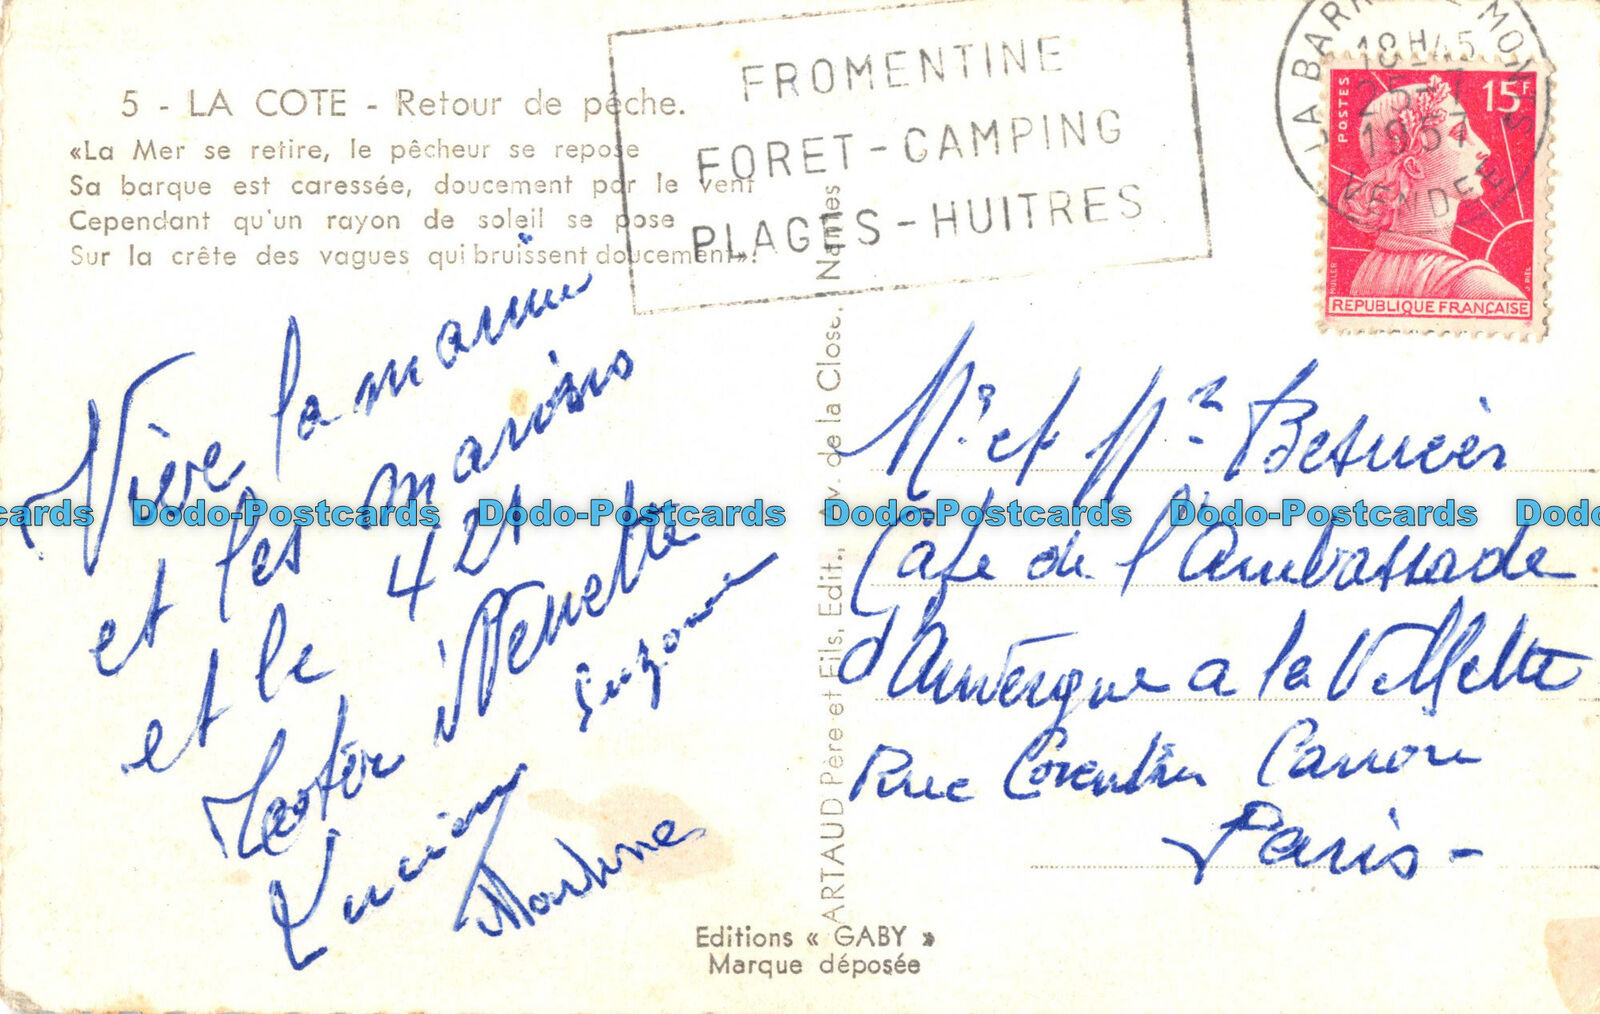 5 - LA COTE - Retour de pêche.
«La Mer se retire, le pêcheur se repose
Sa barque est caressée, doucement par le vent
Cependant qu'un rayon de soleil se pose
Sur la crête des vagues qui bruissent doucement».
FROMENTINE
FORET-CAMPING
PLAGES-HUITRES
LA BARRE DE MONTS
18H45
25-7
1957
VENDEE
POSTES
15F
MULLER
J. PIEL
REPUBLIQUE FRANÇAISE
Vive la marine
et les marins
et le 421
Nenette
Suzanne
Lucien
Martine
Mr et Me
Café de l'Ambassade
d'Auvergne a la Villette
Rue Corentin Cariou
Paris-
ARTAUD Père et Fils, Edit., Av. de la Close, Nantes
Editions « GABY »
Marque déposée
Dodo-Postcards Dodo-Postcards Dodo-Postcards Dodo-Postcards